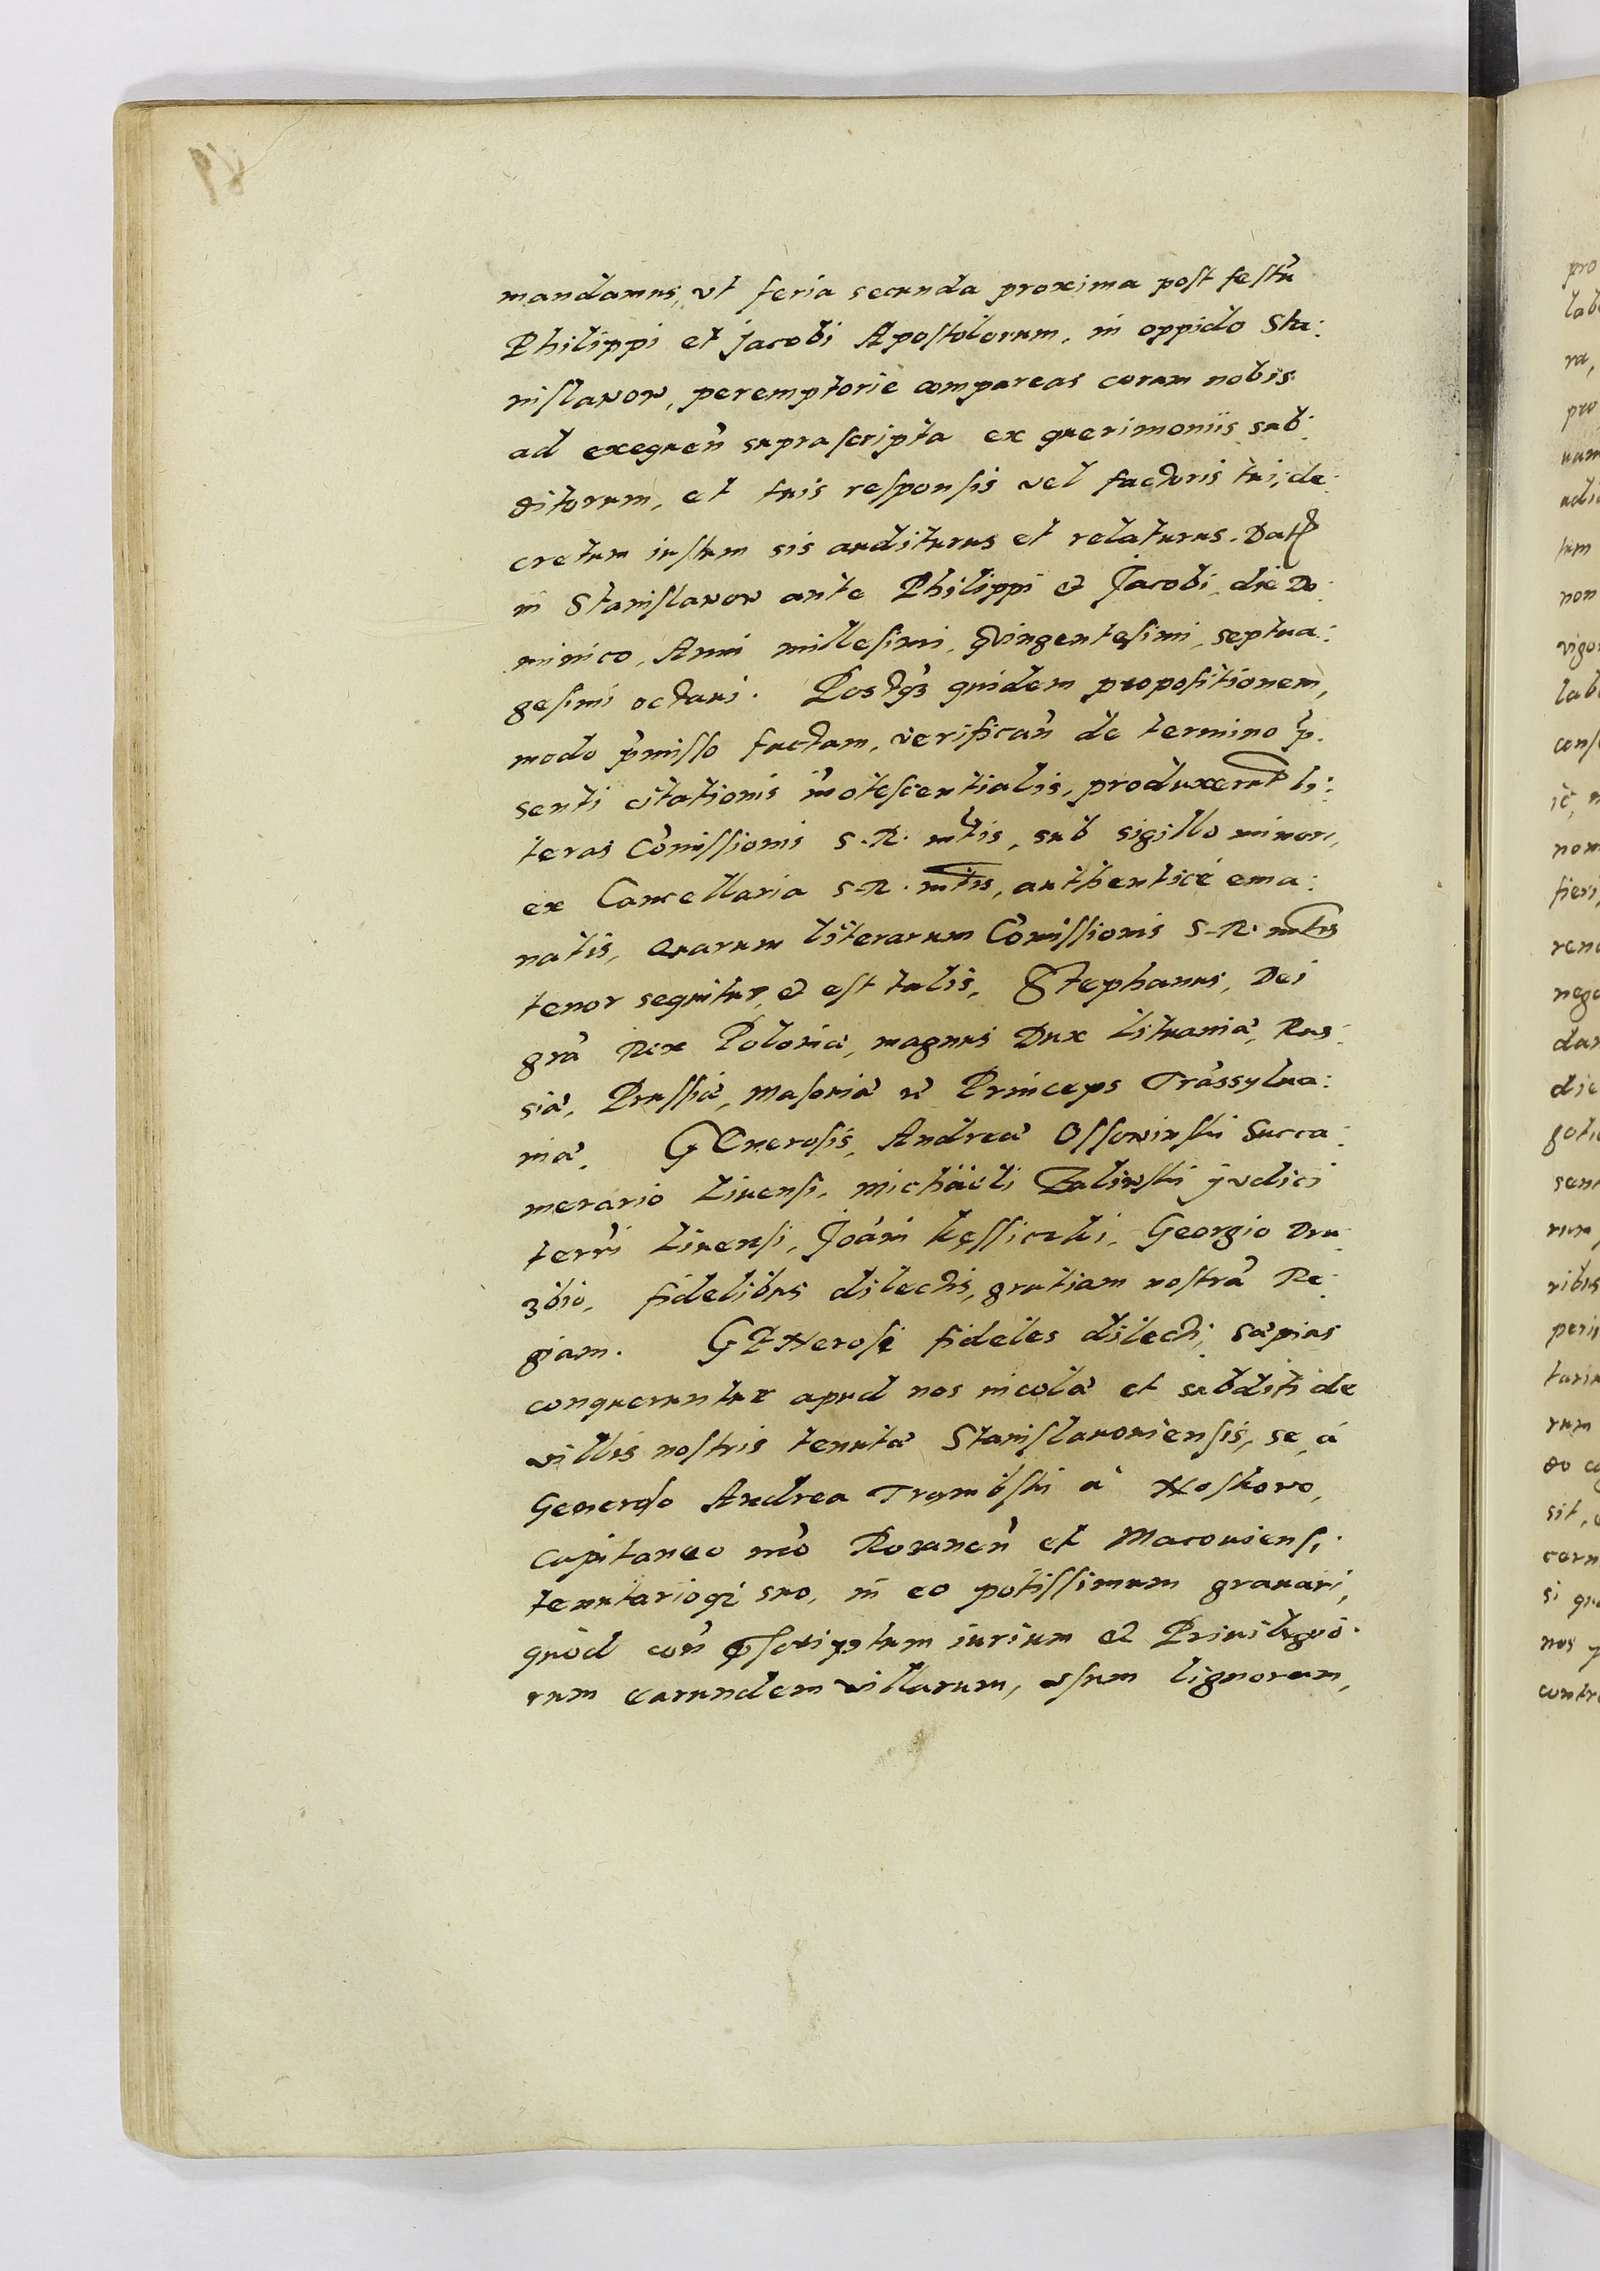 mandamus, vt feria secunda proxima post festũ
Philippi et Jacobi Apostolorum, in oppido Sta:
nislawow, peremptorie compareas coram nobis
ad exequen̄ suprascripta ex querimoniis sub:
ditorum, et tuis responsis vel factoris tui, de:
cretum iustum sis auditurus et relaturus. Datt
in Stanislawow ante Philippi et Jacobi, die Do:
minico, Anni millesimi, qvingentesimi, septua:
gesimi octaui. Postq̃ quidem propositionem,
modo p̃misso factam, verifican̄ de termino p̃:
senti citationis iñotescentialis, produxerunt li:
teras Com̃issionis S. R. mtis, sub sigillo minori,
ex Cancellaria S. R. mtis, authenticè ema:
natis, quarum literarum Com̃issionis S. R. mtis
tenor sequitur, et est talis, Stephanus, Dei
gr̃a Rex Poloniæ, magnus Dux Lituaniæ, Rus:
siæ, Prussiæ, Masouiæ et Princeps Trãssylua:
niæ. GEnerosis, Andreæ Ossowinski Succa:
merario Liuensi, Michaëli Zaliwski jvdici
terr̃i Liuensi, Joãni Kęssiczki, Georgio Dru:
zbic, fidelibus dilectis, gratiam nostrã Re:
giam. GENerosi fideles dilecti, Sæpius
conqueruntur apud nos incolæ et subditi de
villis nostris tenutæ Stanislawowiensis, se, à
Generoso Andrea Trąmbski à Noskowo,
Capitaneo nr̃o Rozanen̄ et Macouiensi
tenutarioq̃ suo, in eo potissimum grauari,
quòd con̄ iurium et Priuilegio:
rum earundem villarum, vsum lignorum,